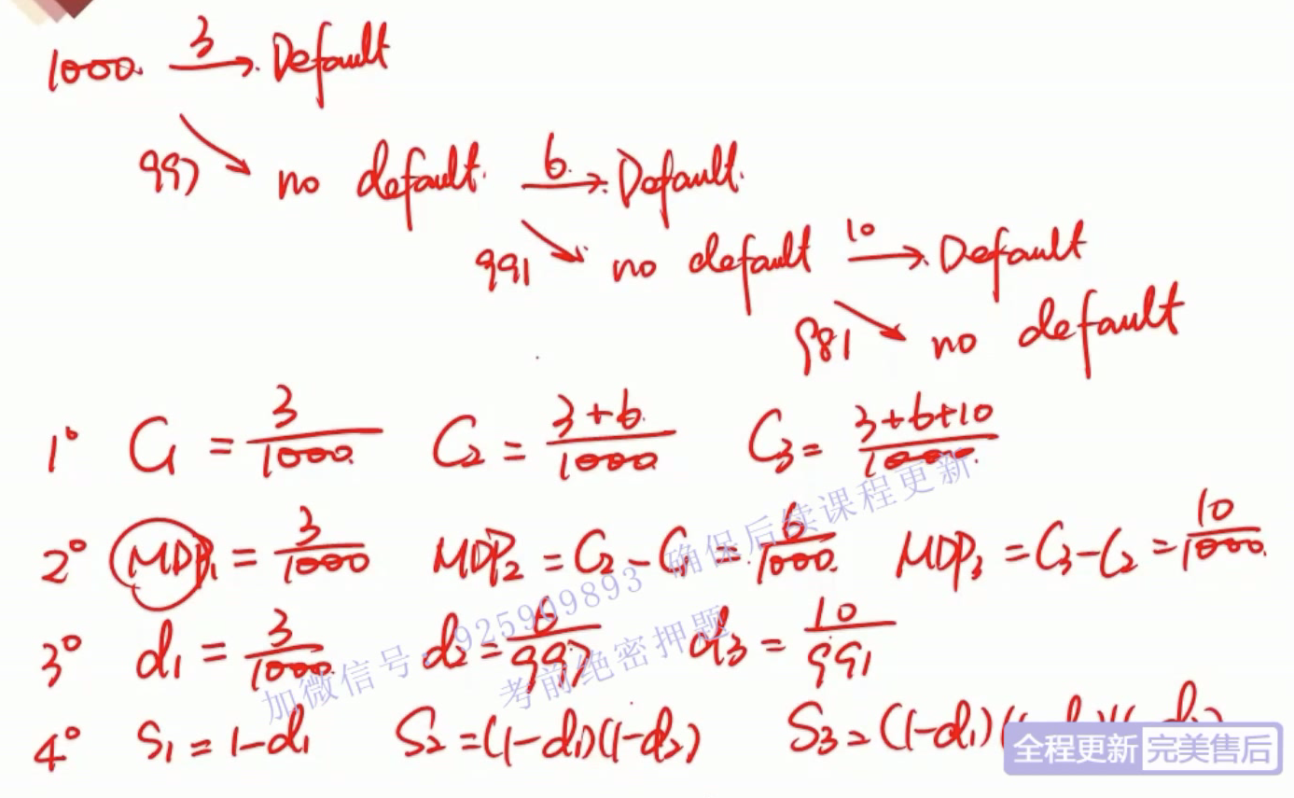 1000 3→ Default
997 ↘ no default. 6→ Default.
991 ↘ no default 10→ Default
981 ↘ no default
1° C₁ = 3/1000 C₂ = 3+6/1000 C₃ = 3+6+10/1000
2° MDP₁ = 3/1000 MDP₂ = C₂-C₁ = 6/1000 MDP₃ = C₃-C₂ = 10/1000
3° d₁ = 3/1000 d₂ = 6/997 d₃ = 10/991
4° S₁ = 1-d₁ S₂ = (1-d₁)(1-d₂) S₃ = (1-d₁)
加微信号: 925909893 确保后续课程更新
考前绝密押题
全程更新 完美售后